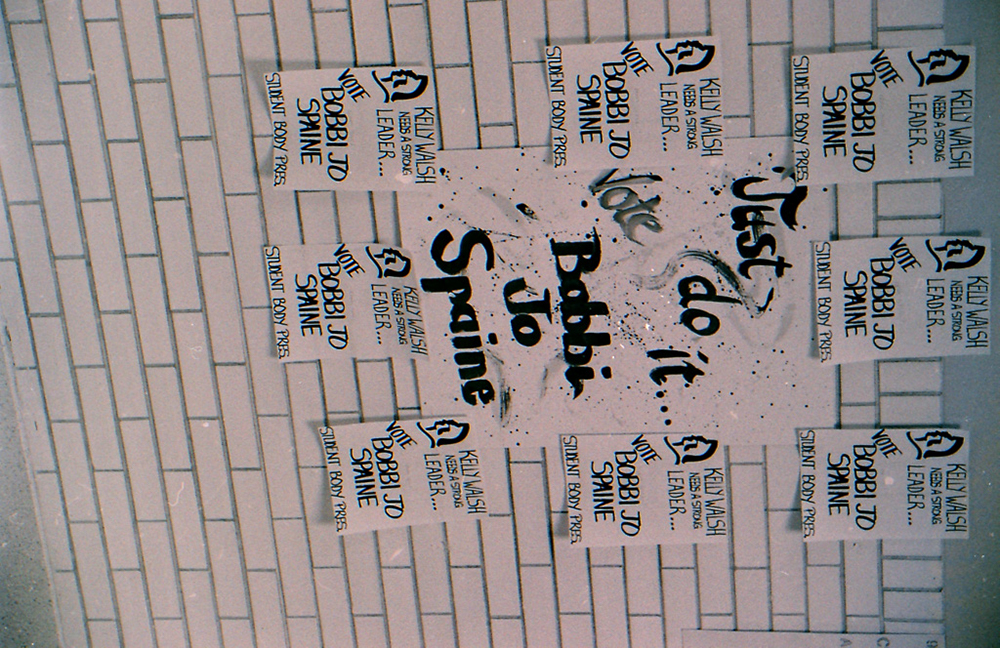 KELLY WALSH
NEEDS A STRONG
LEADER...
VOTE
BOBBI JO
SPAINE
STUDENT BODY PRES.
KELLY WALSH
NEEDS A STRONG
LEADER...
VOTE
BOBBI JO
SPAINE
STUDENT BODY PRES.
KELLY WALSH
NEEDS A STRONG
LEADER...
VOTE
BOBBI JO
SPAINE
STUDENT BODY PRES.
KELLY WALSH
NEEDS A STRONG
LEADER...
VOTE
BOBBI JO
SPAINE
STUDENT BODY PRES.
Just
do it...
Vote
Bobbi
Jo
Spaine
KELLY WALSH
NEEDS A STRONG
LEADER...
VOTE
BOBBI JO
SPAINE
STUDENT BODY PRES.
KELLY WALSH
NEEDS A STRONG
LEADER...
VOTE
BOBBI JO
SPAINE
STUDENT BODY PRES.
KELLY WALSH
NEEDS A STRONG
LEADER...
VOTE
BOBBI JO
SPAINE
STUDENT BODY PRES.
KELLY WALSH
NEEDS A STRONG
LEADER...
VOTE
BOBBI JO
SPAINE
STUDENT BODY PRES.